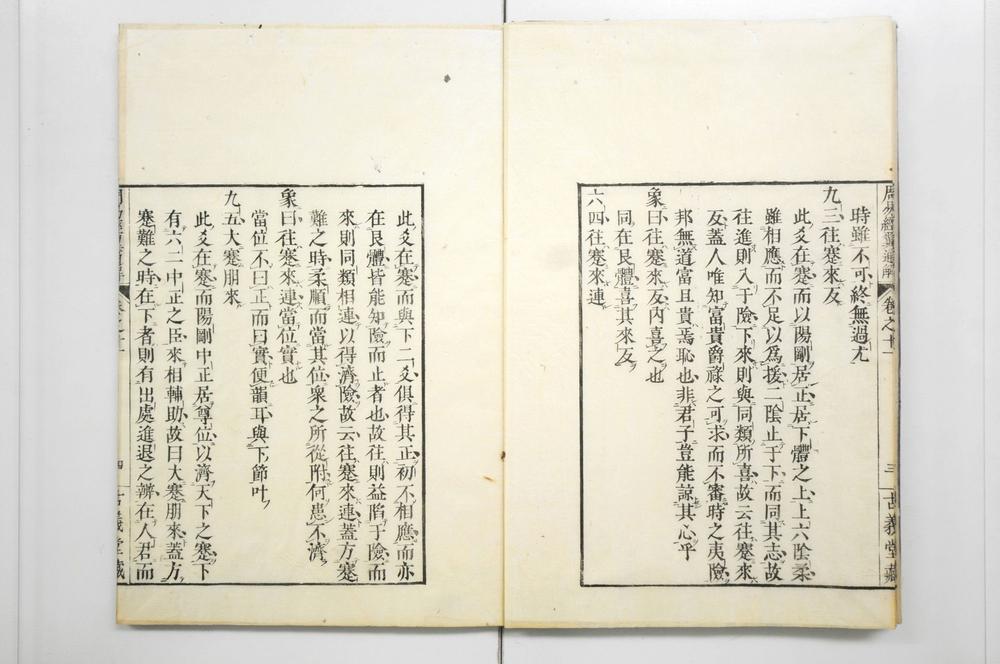 周易經翼通解 卷之十一 三 古義堂藏
時雖不可終無過尤
九三往蹇來反
此爻在蹇而以陽剛居正居下體之上上六陰柔
雖相應而不足以爲援二陰止于下而同其志故
往進則入于險下來則與同類所喜故云往蹇來
反蓋人唯知富貴爵祿之可求而不審時之夷險
邦無道富且貴焉恥也非君子豈能諒其心乎
象曰往蹇來反內喜之也
同在艮體喜其來反
六四往蹇來連
此爻在蹇而與下二爻俱得其正初不相應而亦
在艮體皆能知險而止者也故往則益陷于險而
來則同類相連以得濟險故云往蹇來連蓋方蹇
難之時柔順而當其位衆之所從附何患不濟
象曰往蹇來連當位實也
當位不曰正而曰實便韻耳與下節叶
九五大蹇朋來
此爻在蹇而陽剛中正居尊位以濟天下之蹇下
有六二中正之臣來相輔助故曰大蹇朋來蓋方
蹇難之時在下者則有出處進退之辨在人君而
卷之十一 四 古義堂藏